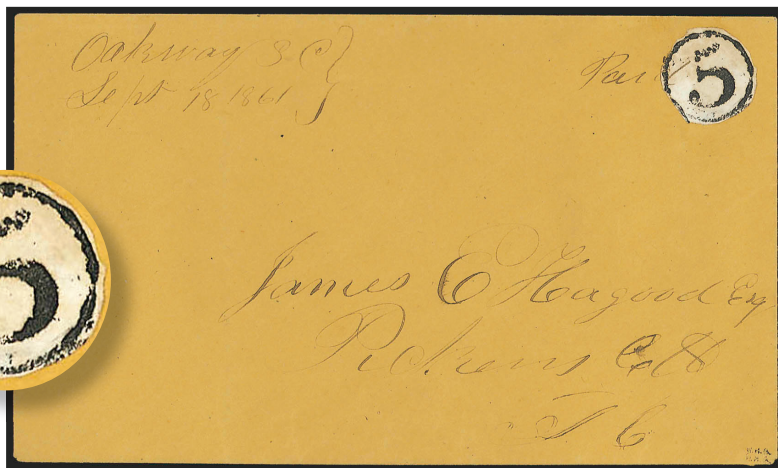 Oakway S. C
Sept 18 1861
Paid 5
James E Hagood Esq
Pickens C H
S C